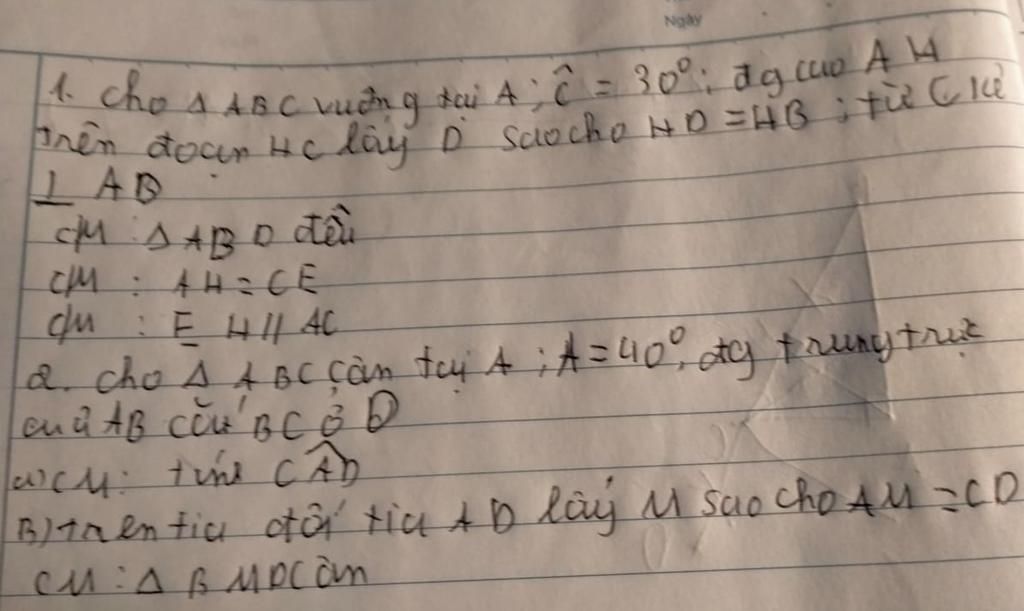 Ngày
1. Cho Δ ABC vuông tại A ; Ĉ = 30° ; đg cao AH
trên đoạn HC lấy D sao cho HD = HB ; từ C kẻ
⊥ AD
CM : Δ ABD đều
CM : AH = CE
CM : EH // AC
2. Cho Δ ABC cân tại A ; A = 40°, đg trung trực
của AB cắt BC ở D
a) CM : tính CÂD
B) trên tia đối tia AD lấy M sao cho AM = CD
CM : Δ BMD cân